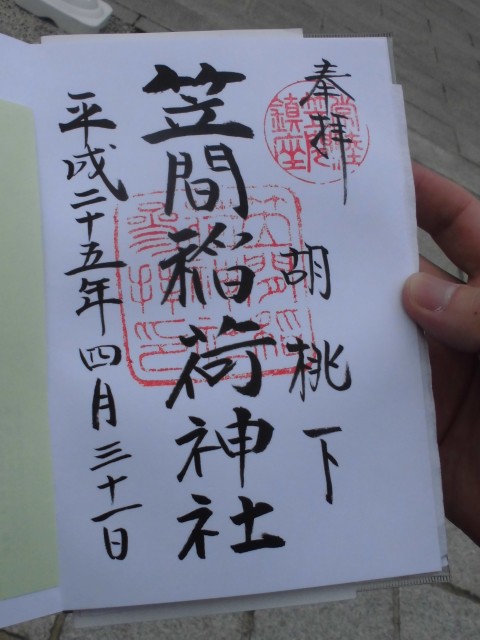 奉拝
常陸
笠間
鎮座
胡桃下
笠間稲荷神社
平成二十五年四月三十一日